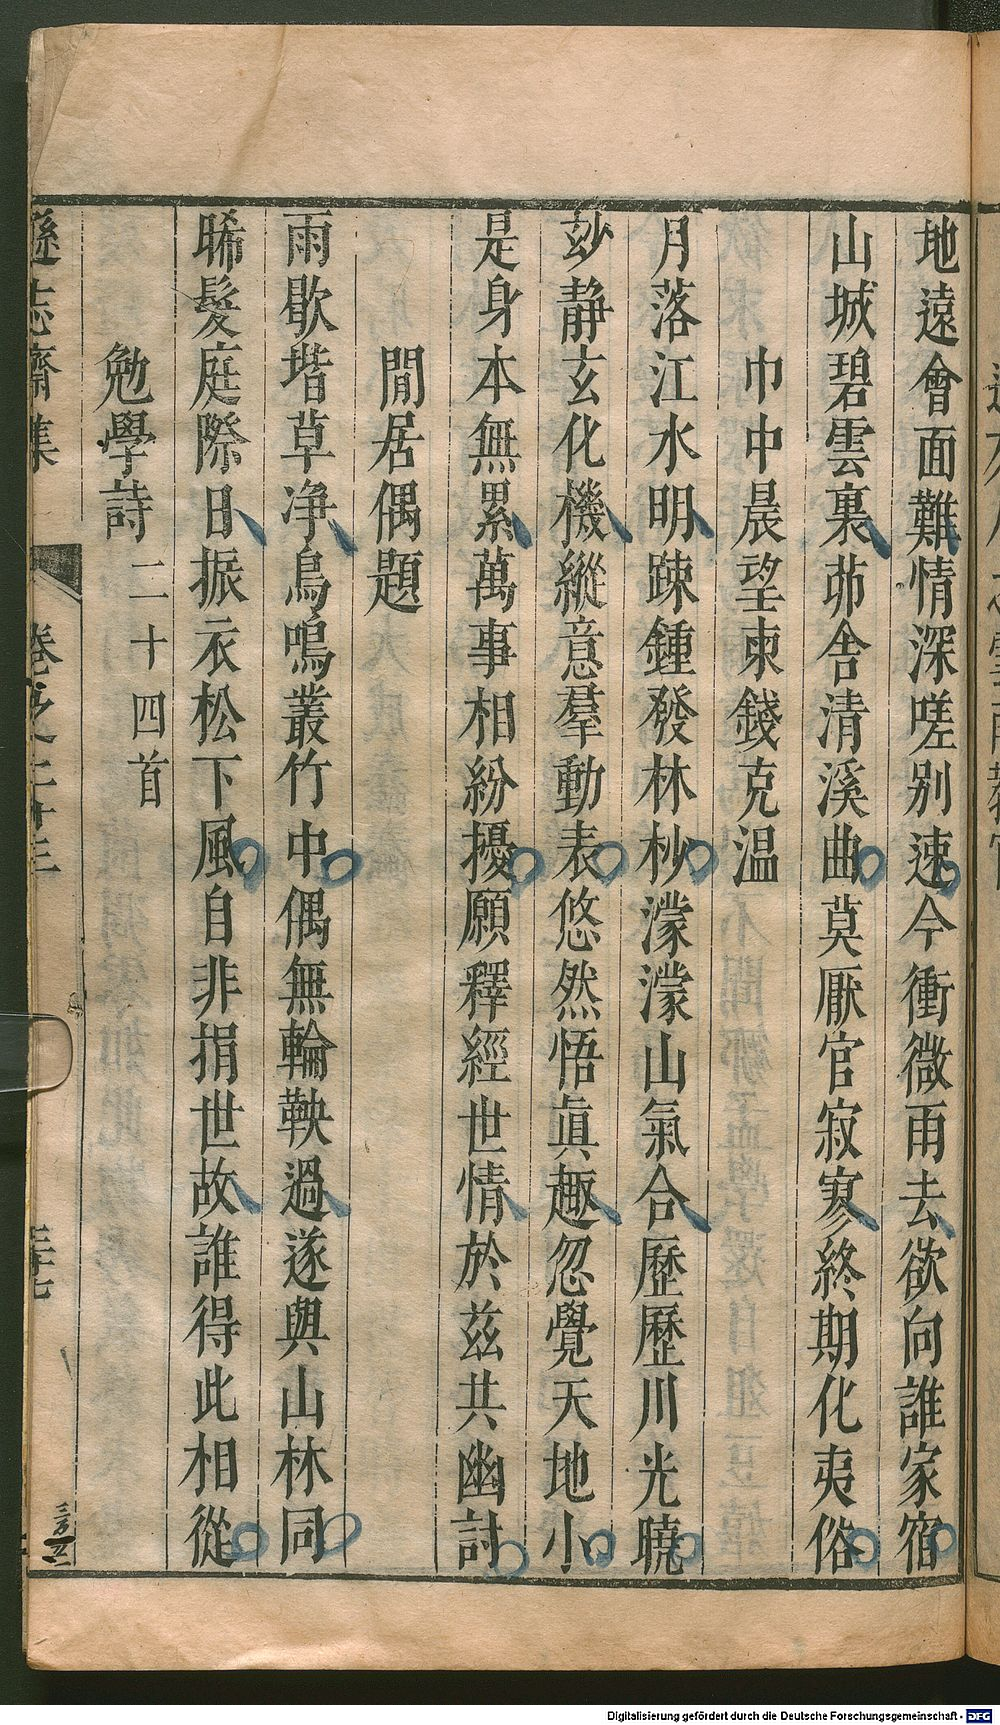 地遠會面難情深嗟别速今衝微雨去欲向誰家宿
山城碧雲裏茆舍清溪曲莫厭官寂寥終期化夷俗
巾中晨望柬錢克温
月落江水明踈鍾發林杪濛濛山氣合歷歷川光曉
玅静玄化機縱意羣動表悠然悟眞趣忽覺天地小
是身本無累萬事相紛擾願釋經世情於兹共幽討
閒居偶題
雨歇堦草净鳥鳴叢竹中偶無輪鞅過遂與山林同
晞髮庭際日振衣松下風自非捐世故誰得此相從
勉學詩二十四首
遜志齋集 卷之二十三
Digitalisierung gefördert durch die Deutsche Forschungsgemeinschaft - DFG